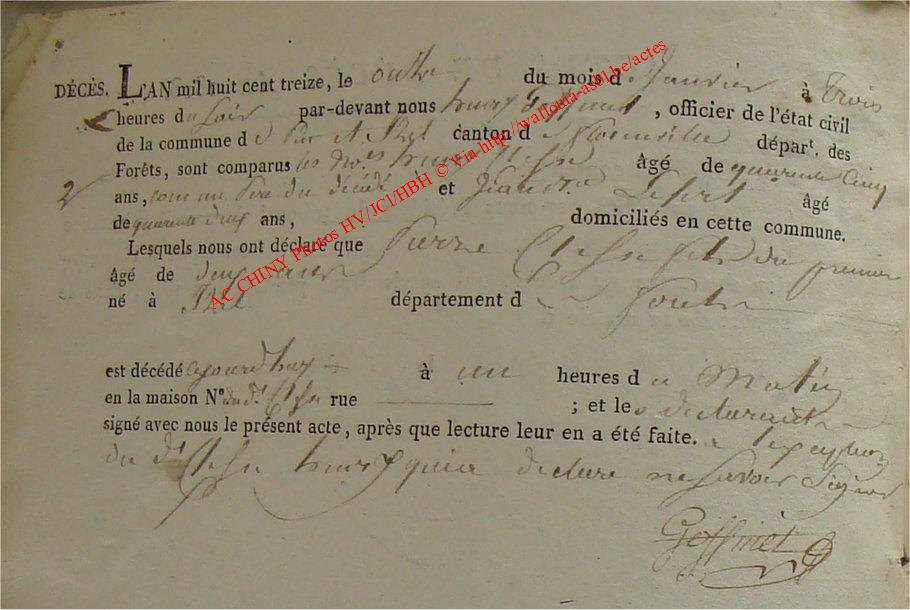 DÉCÈS. L'AN mil huit cent treize, le onze du mois de Janvier à trois
heures du soir par-devant nous henry Geffinet, officier de l'état civil
de la commune d canton de florenville départ. des
Forêts, sont comparus les henry âgé de quarante cinq
2
ans, comme père du décédé et jean Lefort âgé
de quarante deux ans, domiciliés en cette commune.
Lesquels nous ont déclaré que Pierre fils du premier
âgé de deux ans
né à Izel département d forêts
est décédé aujourd'huy à un heures du Matin
en la maison N° du d. rue ; et les déclarants
signé avec nous le présent acte, après que lecture leur en a été faite. a l'exception
du d. henry qui a déclaré ne savoir signer
Geffinet
AC CHINY Photos HV/JCl/HBH © Via http://wallonia-asbl.be/actes